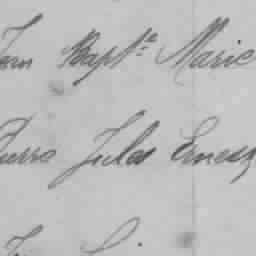 Jean Bapt.te Marie
Pierre Jules Ernest